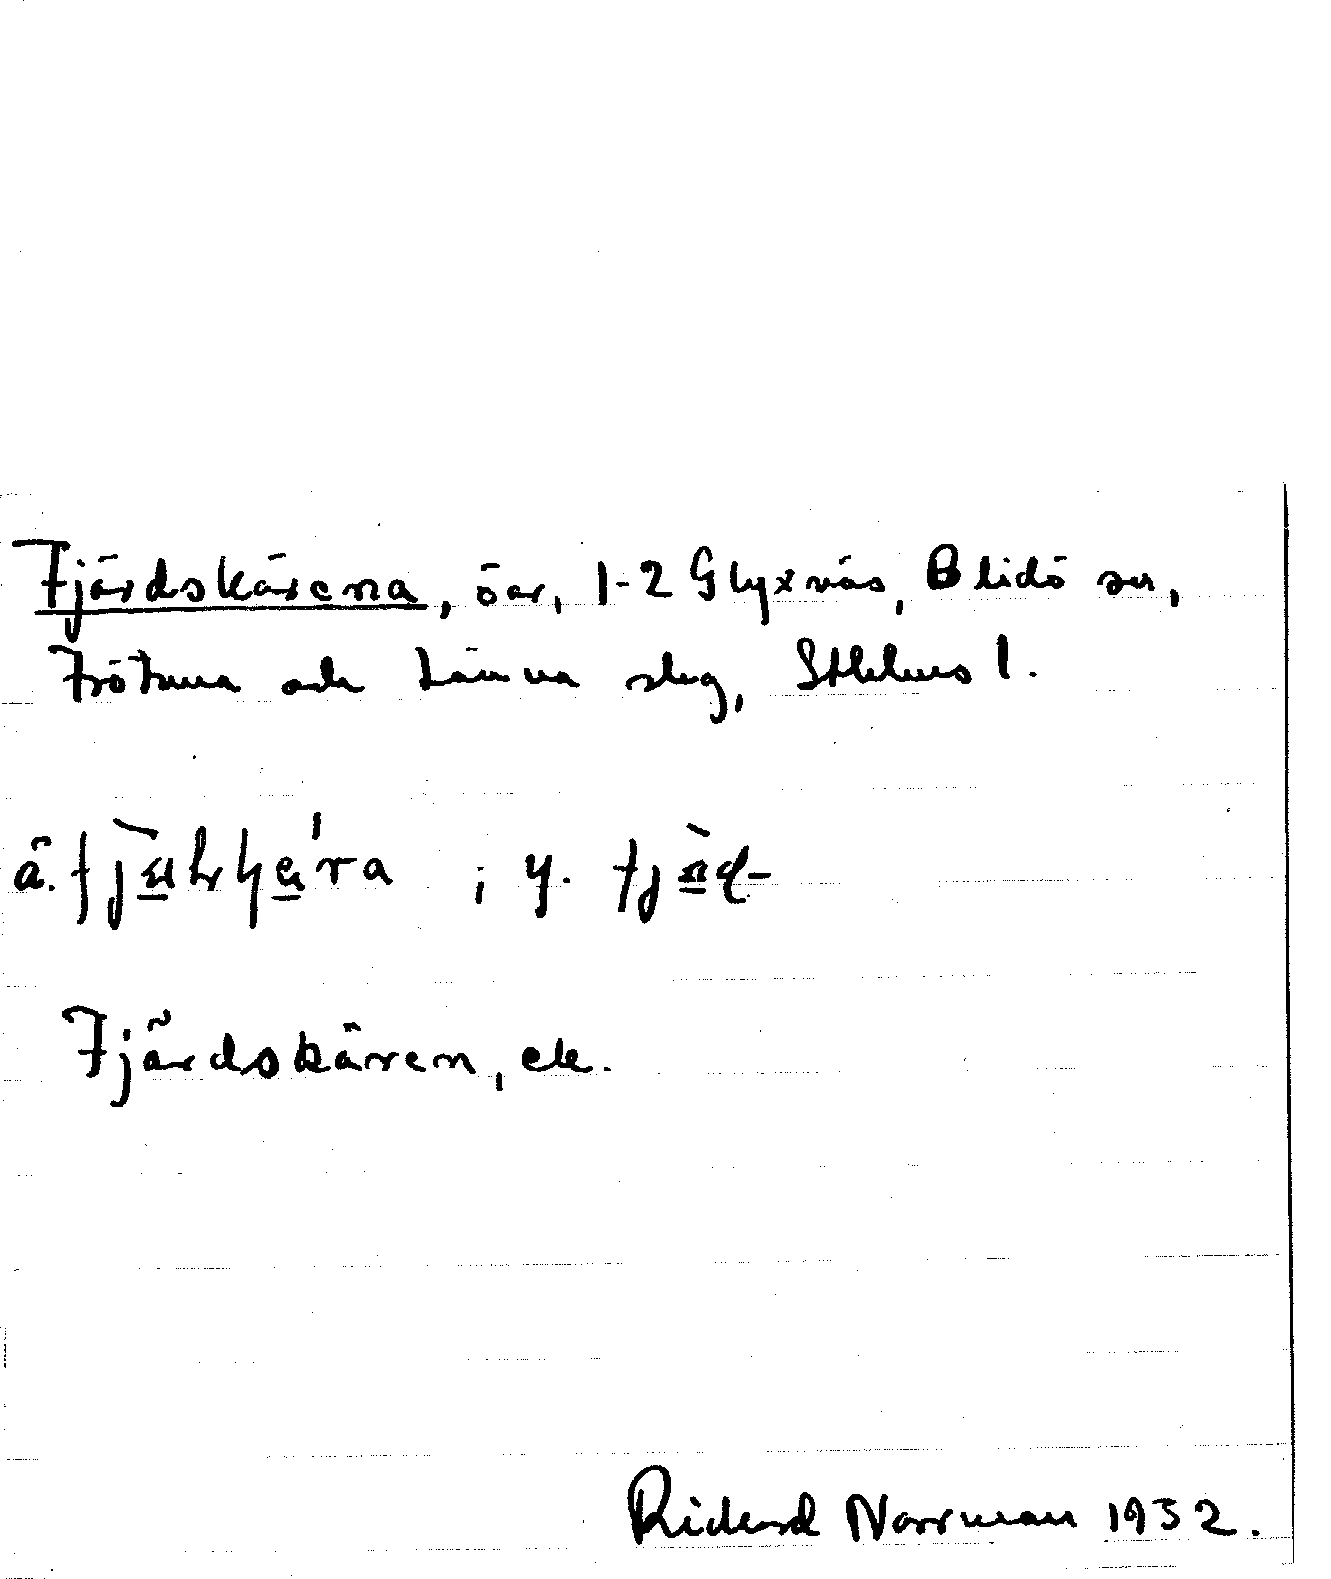 Fjärdskären​a, öar, 1-2 Glyxnäs, Blidö sn,
Frötuna och Länna slag, Sthlms l.
ä. ; y.
Fjärdskären, ek.
Rickard Norrman 1932.